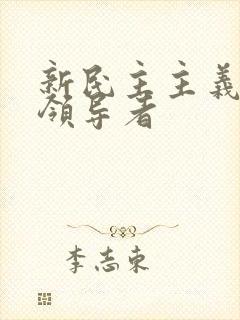 新民主主義
領导者
李志東